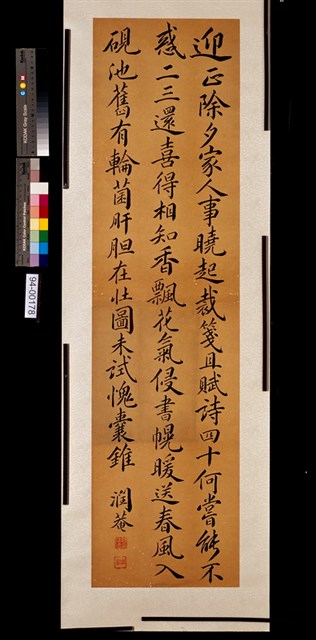 迎正除夕家人事曉起裁箋且賦詩四十何嘗能不
惑二三還喜得相知香飄花氣侵書幌暖送春風入
硯池舊有輪菌肝胆在壮圖未試愧囊錐
潤菴
94-00178